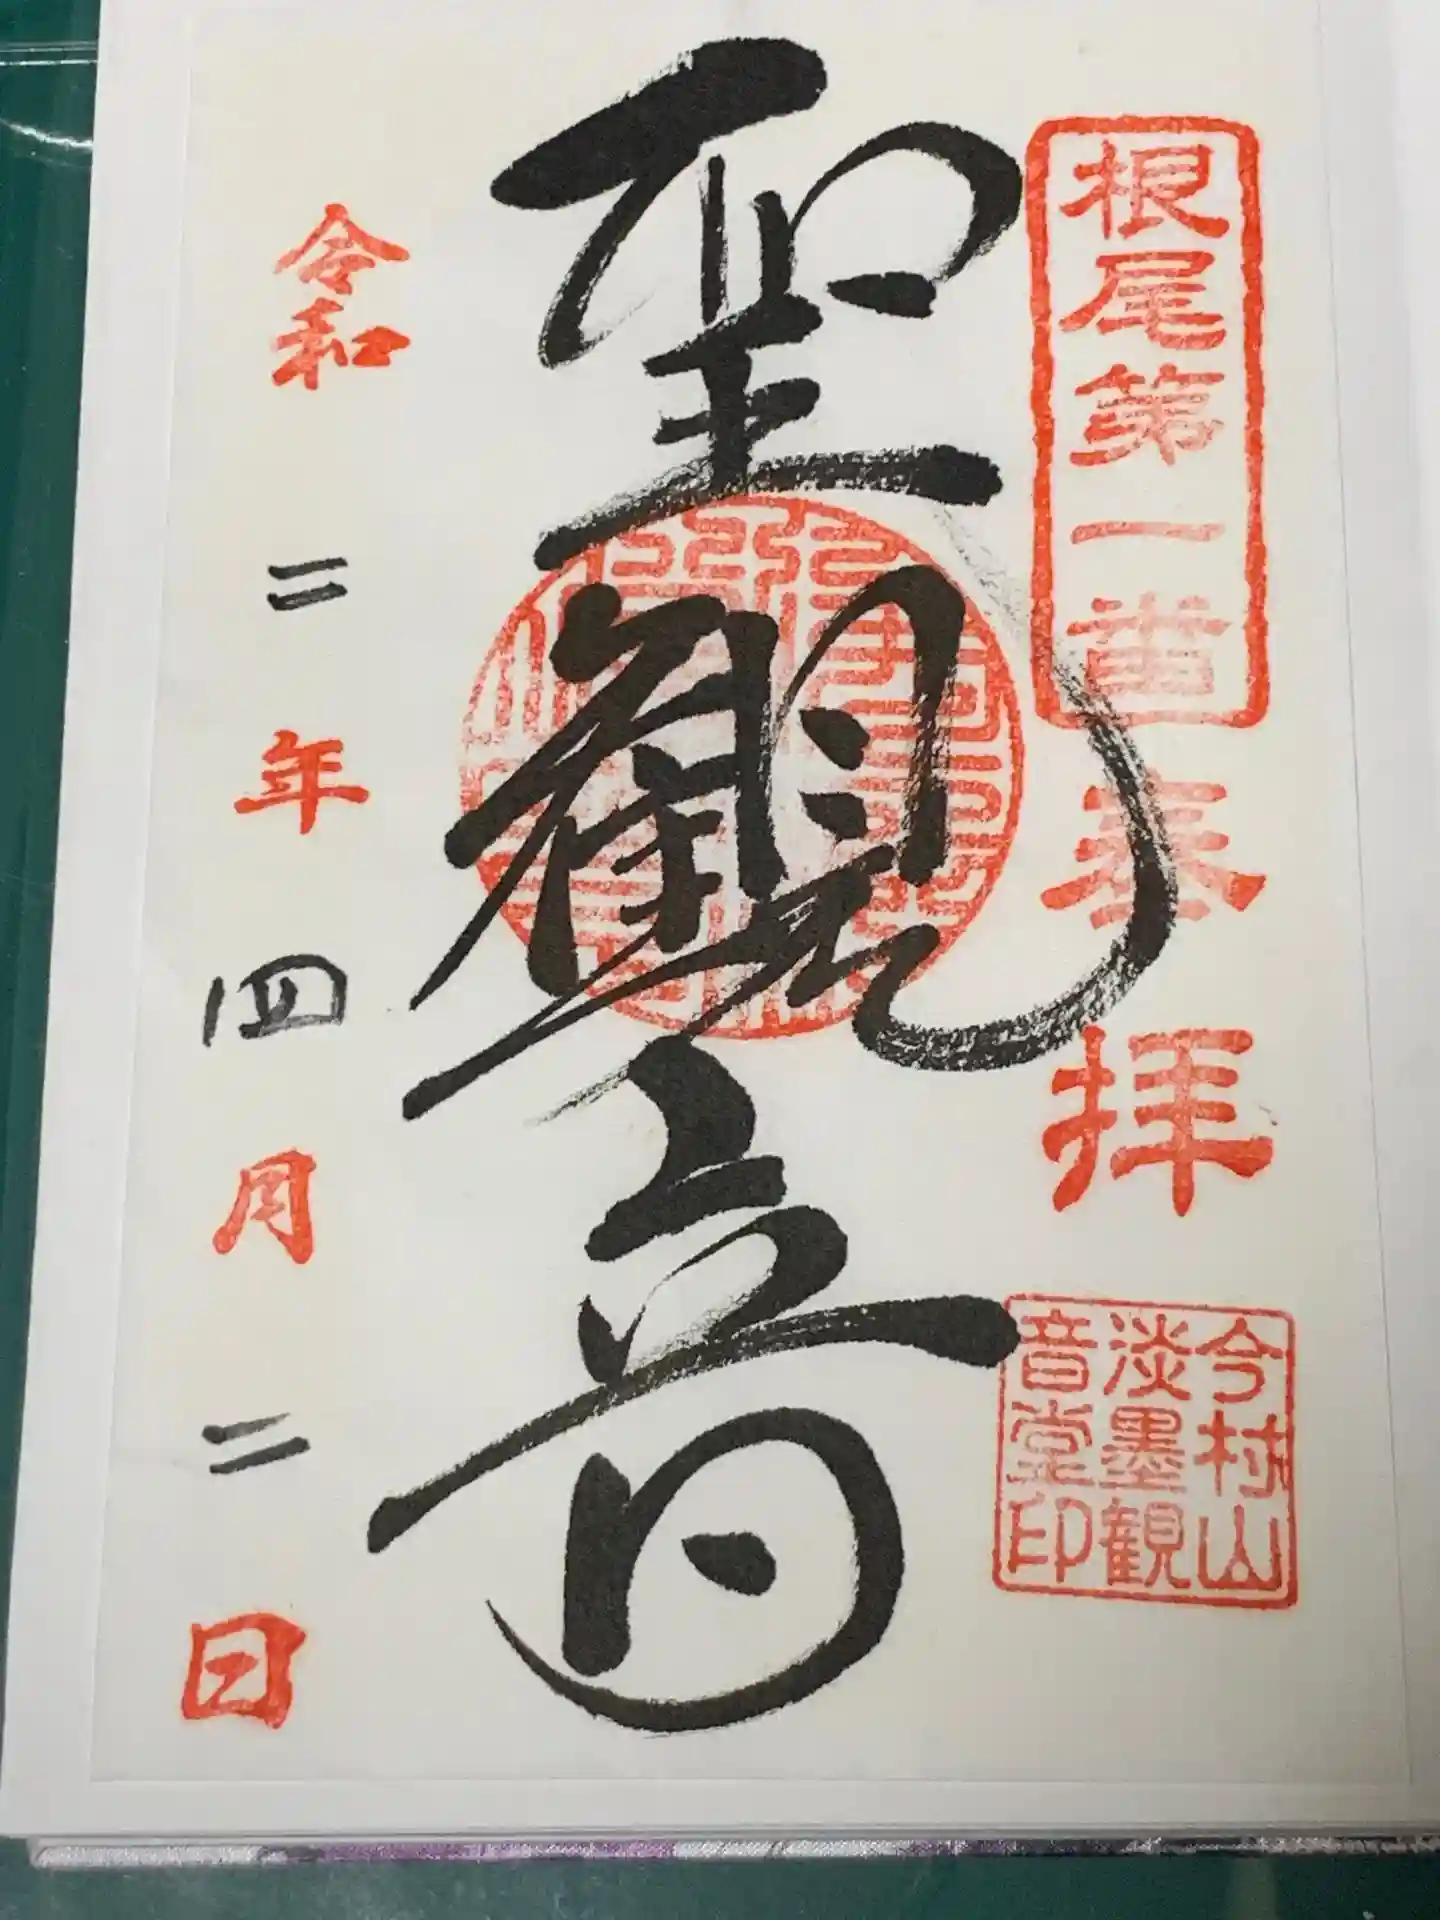 根尾第一番
奉拝
今村山
淡墨観
音堂印
聖觀音
令和二年四月二日